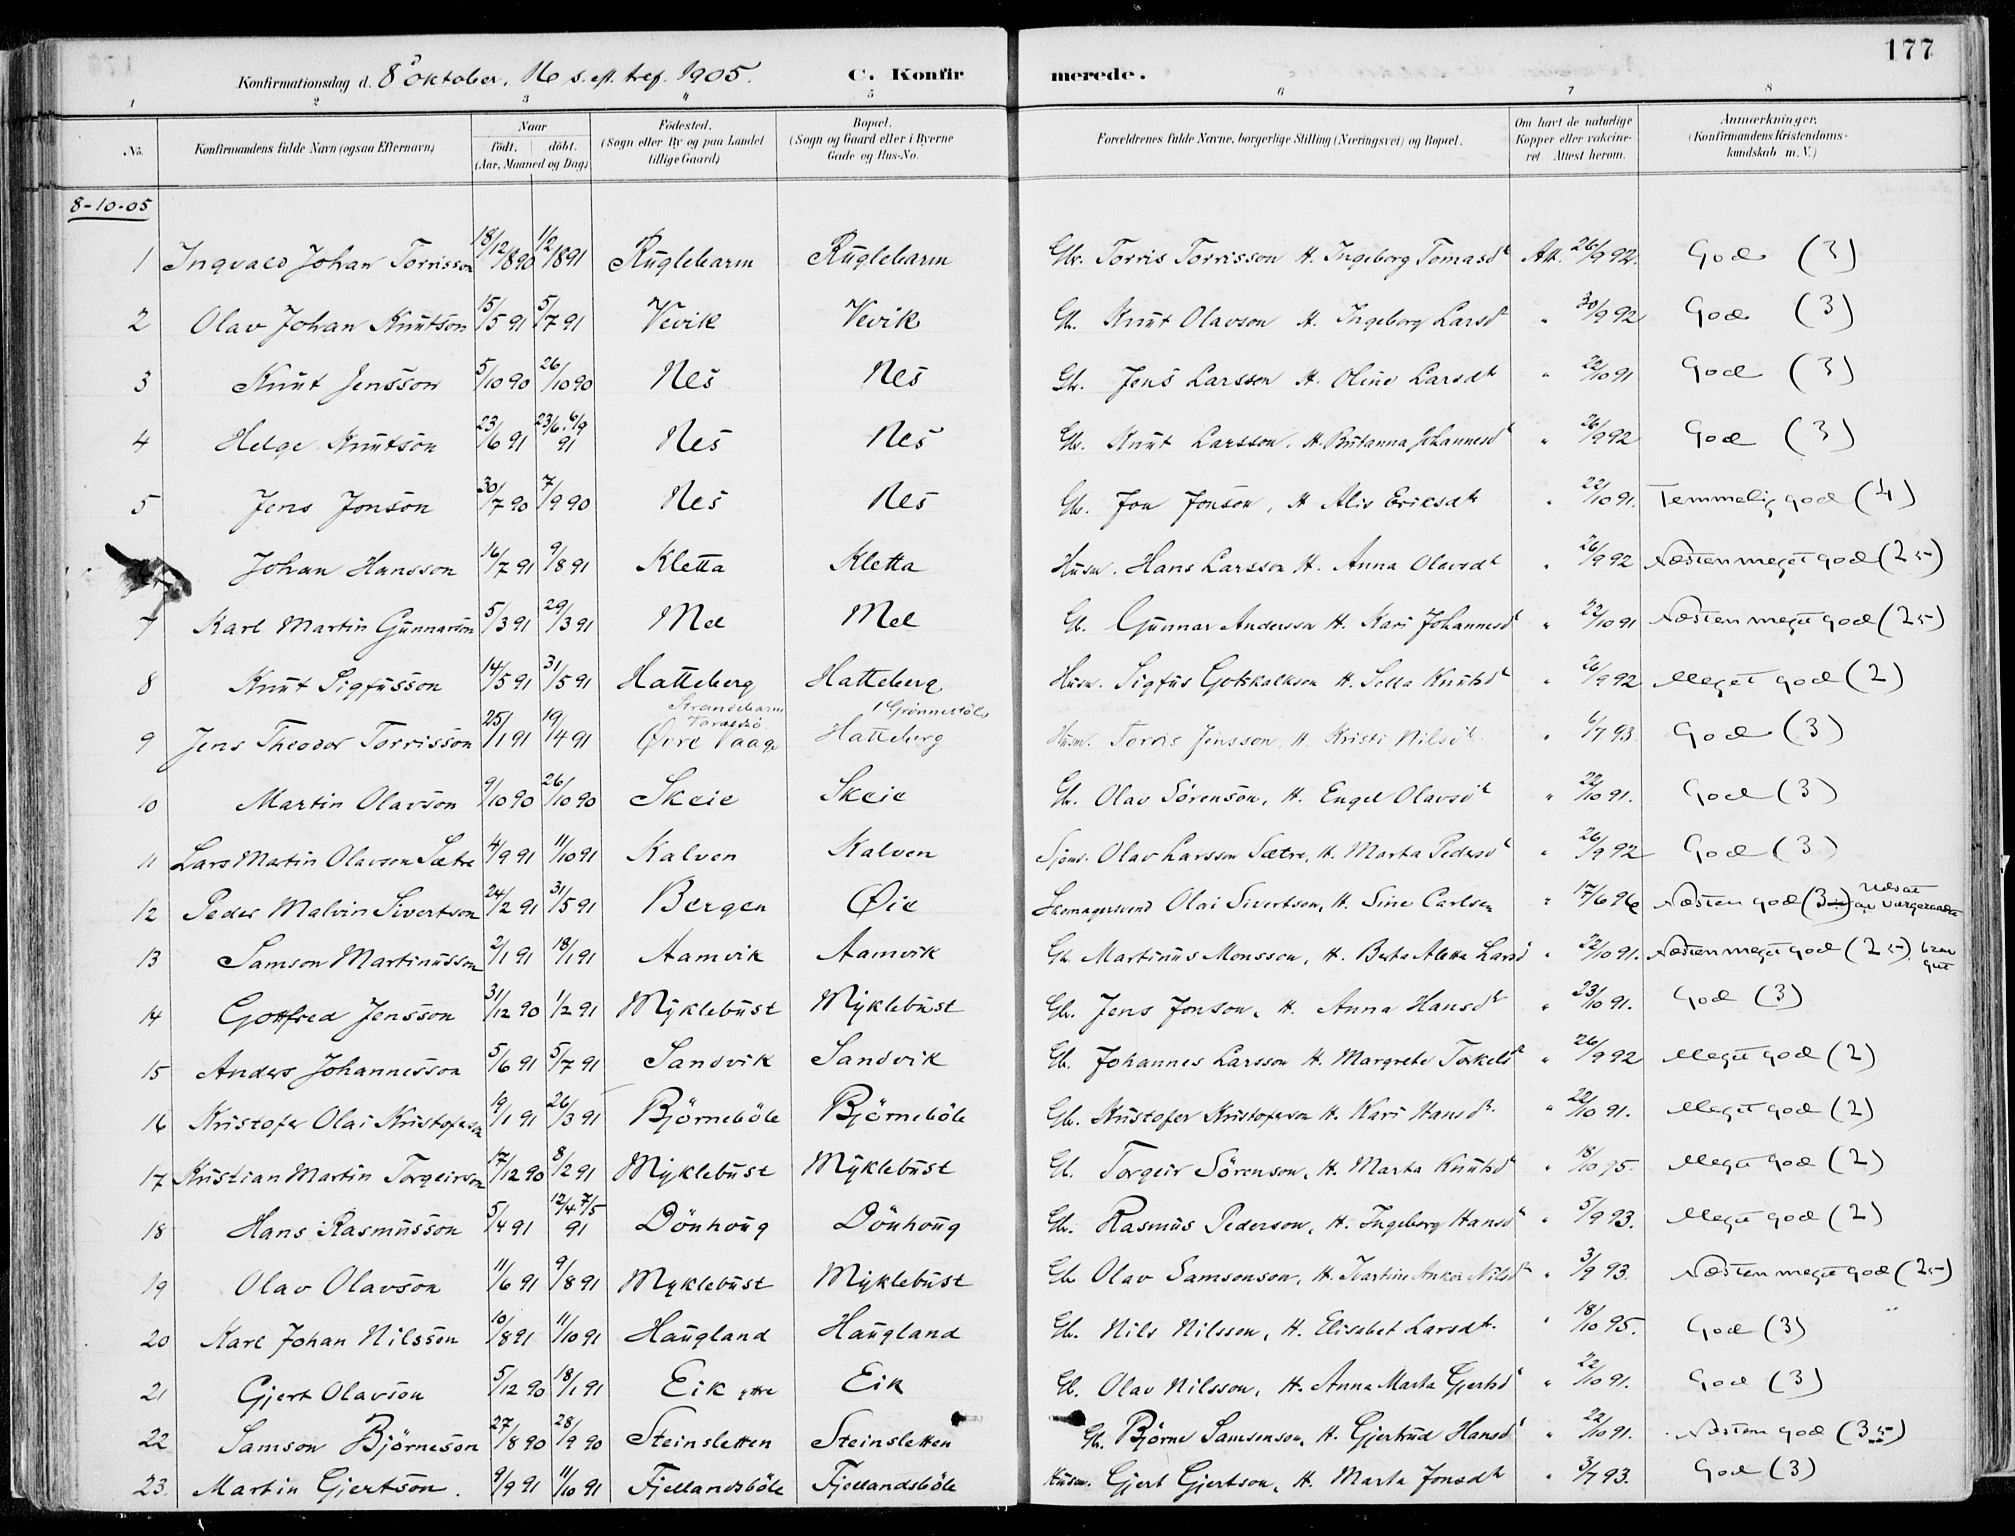 177
Konfirmationsdag d. 8 oktober. 16 s. eft. tref. 1905. C. Konfirmerede.
1 2 3 4 5 6 7 8
No. Konfirmandens fulde Navn (ogsaa Efternavn) Naar født. døbt. (Aar, Maaned og Dag) Fødested. (Sogn eller By og paa Landet tillige Gaard) Bopæl. (Sogn og Gaard eller i Byerne Gade og Hus-No. Forældrenes fulde Navne, borgerlige Stilling (Næringsvei) og Bopæl. Om havt de naturlige Kopper eller vakcineret Attest herom. Anmærkninger. (Konfirmandens Kristendomskundskab m. V.)
8-10-05
1 Ingvald Johan Torrisson 18/12 1890 1/2 1891 Ruglebarm Ruglebarm Gbr. Torris Torrisson H. Ingeborg Tomasdt Att. 26/9 92. God (3)
2 Olav Johan Knutson 15/5 91 5/7 91 Vevik Vevik Gb. Knut Olavson H. Ingeborg Larsdt " 30/9 92 God (3)
3 Knut Jensson 5/10 90 26/10 90 Nes Nes Gb. Jens Larsson H. Oline Larsdt " 22/10 91 God (3)
4 Helge Knutson 23/6 91 23/6, 6/9 91 Nes Nes Gb. Knut Larsson, H. Britanna Johannesdt " 26/9 92 God (3)
5 Jens Jonson 30/7 90 7/9 90 Nes Nes Gb. Jon Jonson, H. Aliv Eriksdt " 22/10 91. Temmelig god (4)
Johan Hansson 16/7 91 9/8 91 Kletta Kletta Husm. Hans Larsson H. Anna Olavsdt " 26/9 92 Næsten meget god (25)
7 Karl Martin Gunnarson 5/3 91 29/3 91 Mel Mel Gb. Gunnar Andersson H. Kari Johannesdt " 22/10 91 Næsten meget god (25)
8 Knut Sigfusson 14/5 91 31/5 91 Hatteberg Hatteberg Husm. Sigfus Gotskalkson H. Sella Knutsdt " 26/9 92 Meget god (2)
9 Jens Theodor Torrisson 25/1 91 19/4 91 Strandebarm Øvre Vaage Grönnestöl Hatteberg Husm. Torris Jensson, H. Kristi Nilsdt " 6/7 93. God (3)
10 Martin Olavson 9/10 90 26/10 90 Skeie Skeie Gb. Olav Sørenson, H. Engel Olavsdt " 22/10 91. God (3)
11 Lars Martin Olavson Sætre 4/9 91 11/10 91 Kalven Kalven Sjøm. Olav Larsson Sætre, H. Marta Pedersdt " 26/9 92 God (3)
12 Peder Malvin Sivertson 24/2 91 31/5 91 Bergen Øie Skomagersvend Olai Sivertson, H. Sine Carlsen " 17/6 96 Næsten god (3) udsat av Vergeraadet
13 Samson Martinusson 2/1 91 18/1 91 Aamvik Aamvik Gb. Martinus Monsson, H. Berta Aletta Larsdt " 22/10 91. Næsten meget god (25). brav gut
14 Gottfred Jensson 31/12 90 1/2 91 Myklebust Myklebust Gb. Jens Jonson, H. Anna Hansdt " 23/10 91. God (3)
15 Anders Johannesson 5/6 91 5/7 91 Sandvik Sandvik Gb. Johannes Larsson H. Margrete Torkelsdt " 26/9 92 Meget god (2)
16 Kristofer Olai Kristoferson 19/1 91 26/3 91 Björneböle Björneböle Gb. Kristofer Kristoferson H. Kari Hansdt. " 22/10 91. Meget god (2)
17 Kristian Martin Torgeirson 17/12 90 8/2 91 Myklebust Myklebust Gb. Torgeir Sörenson, H. Marta Knutsdt " 18/10 95. Meget god (2)
18 Hans Rasmusson 5/4 91 12/4 7/5 91 Dönhoug Dönhoug Gb. Rasmus Pederson, H. Ingeborg Hansdt " 5/9 93. Meget god (2)
19 Olav Olavson 11/6 91 9/8 91 Myklebust Myklebust Gb Olav Samsonson, H. Ivartine Ankor Nilsdt " 3/9 93. Næsten meget god (25)
20 Karl Johan Nilsson 10/8 91 11/10 91 Haugland Haugland Gb. Nils Nilsson, H. Elisabet Larsdt. " 18/10 95. God (3)
21 Gjert Olavson 5/12 90 18/1 91 Eik ytre Eik Gb. Olav Nilsson, H. Anna Marta Gjertsdt " 22/10 91. God (3)
22 Samson Björneson 27/8 90 28/9 90 Steinsletten Steinsletten Gb. Björne Samsonson, H. Gjertrud Hansdt " 22/10 91. Næsten god (35)
23. Martin Gjertson. 9/9 91 11/10 91 Fjellandsböle Fjellandsböle Husm. Gjert Gjertson, H. Marta Jonsdt " 3/7 93. God (3)